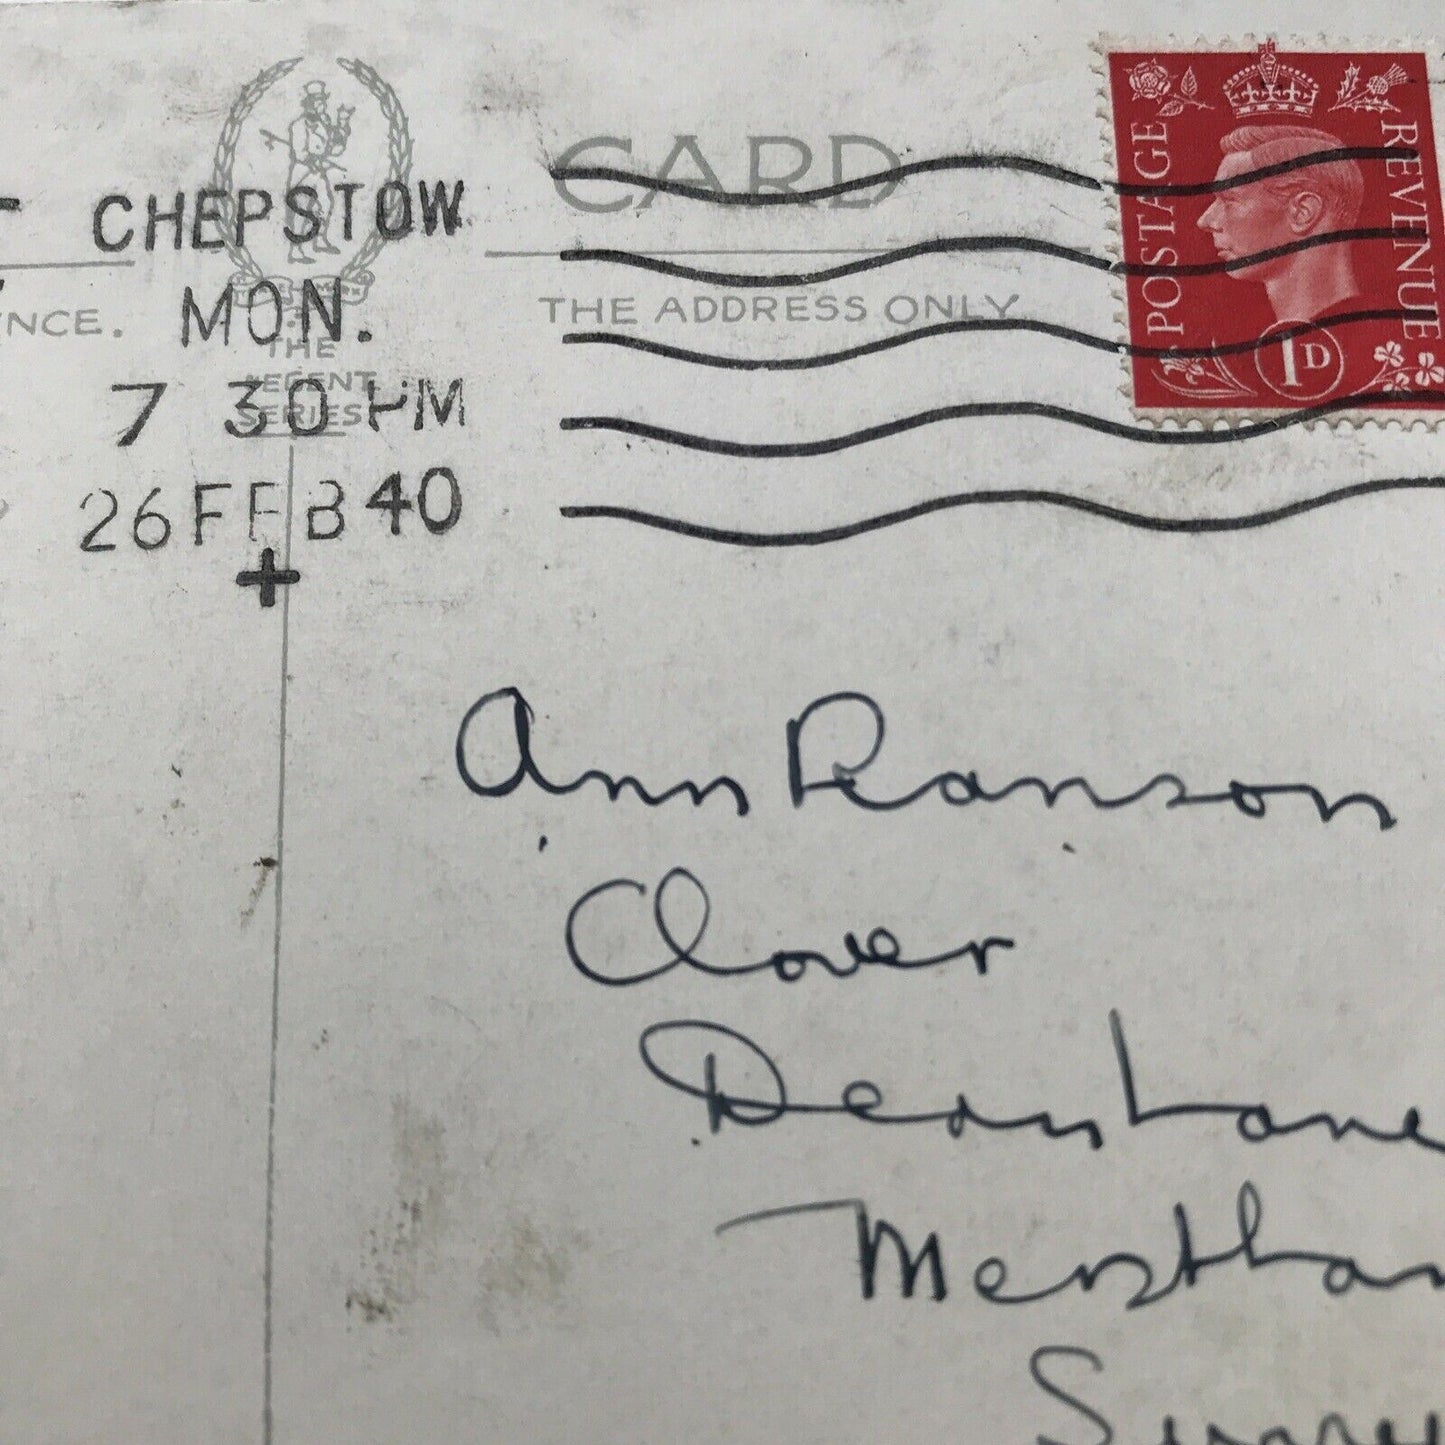 CARD
CHEPSTOW
MON.
7 30 PM
26 FEB 40
NCE.
THE ADDRESS ONLY
THE
REGENT
SERIES
POSTAGE
REVENUE
1D
Ann Ranson
Clover
Deans Lane
Merstha
Surrey